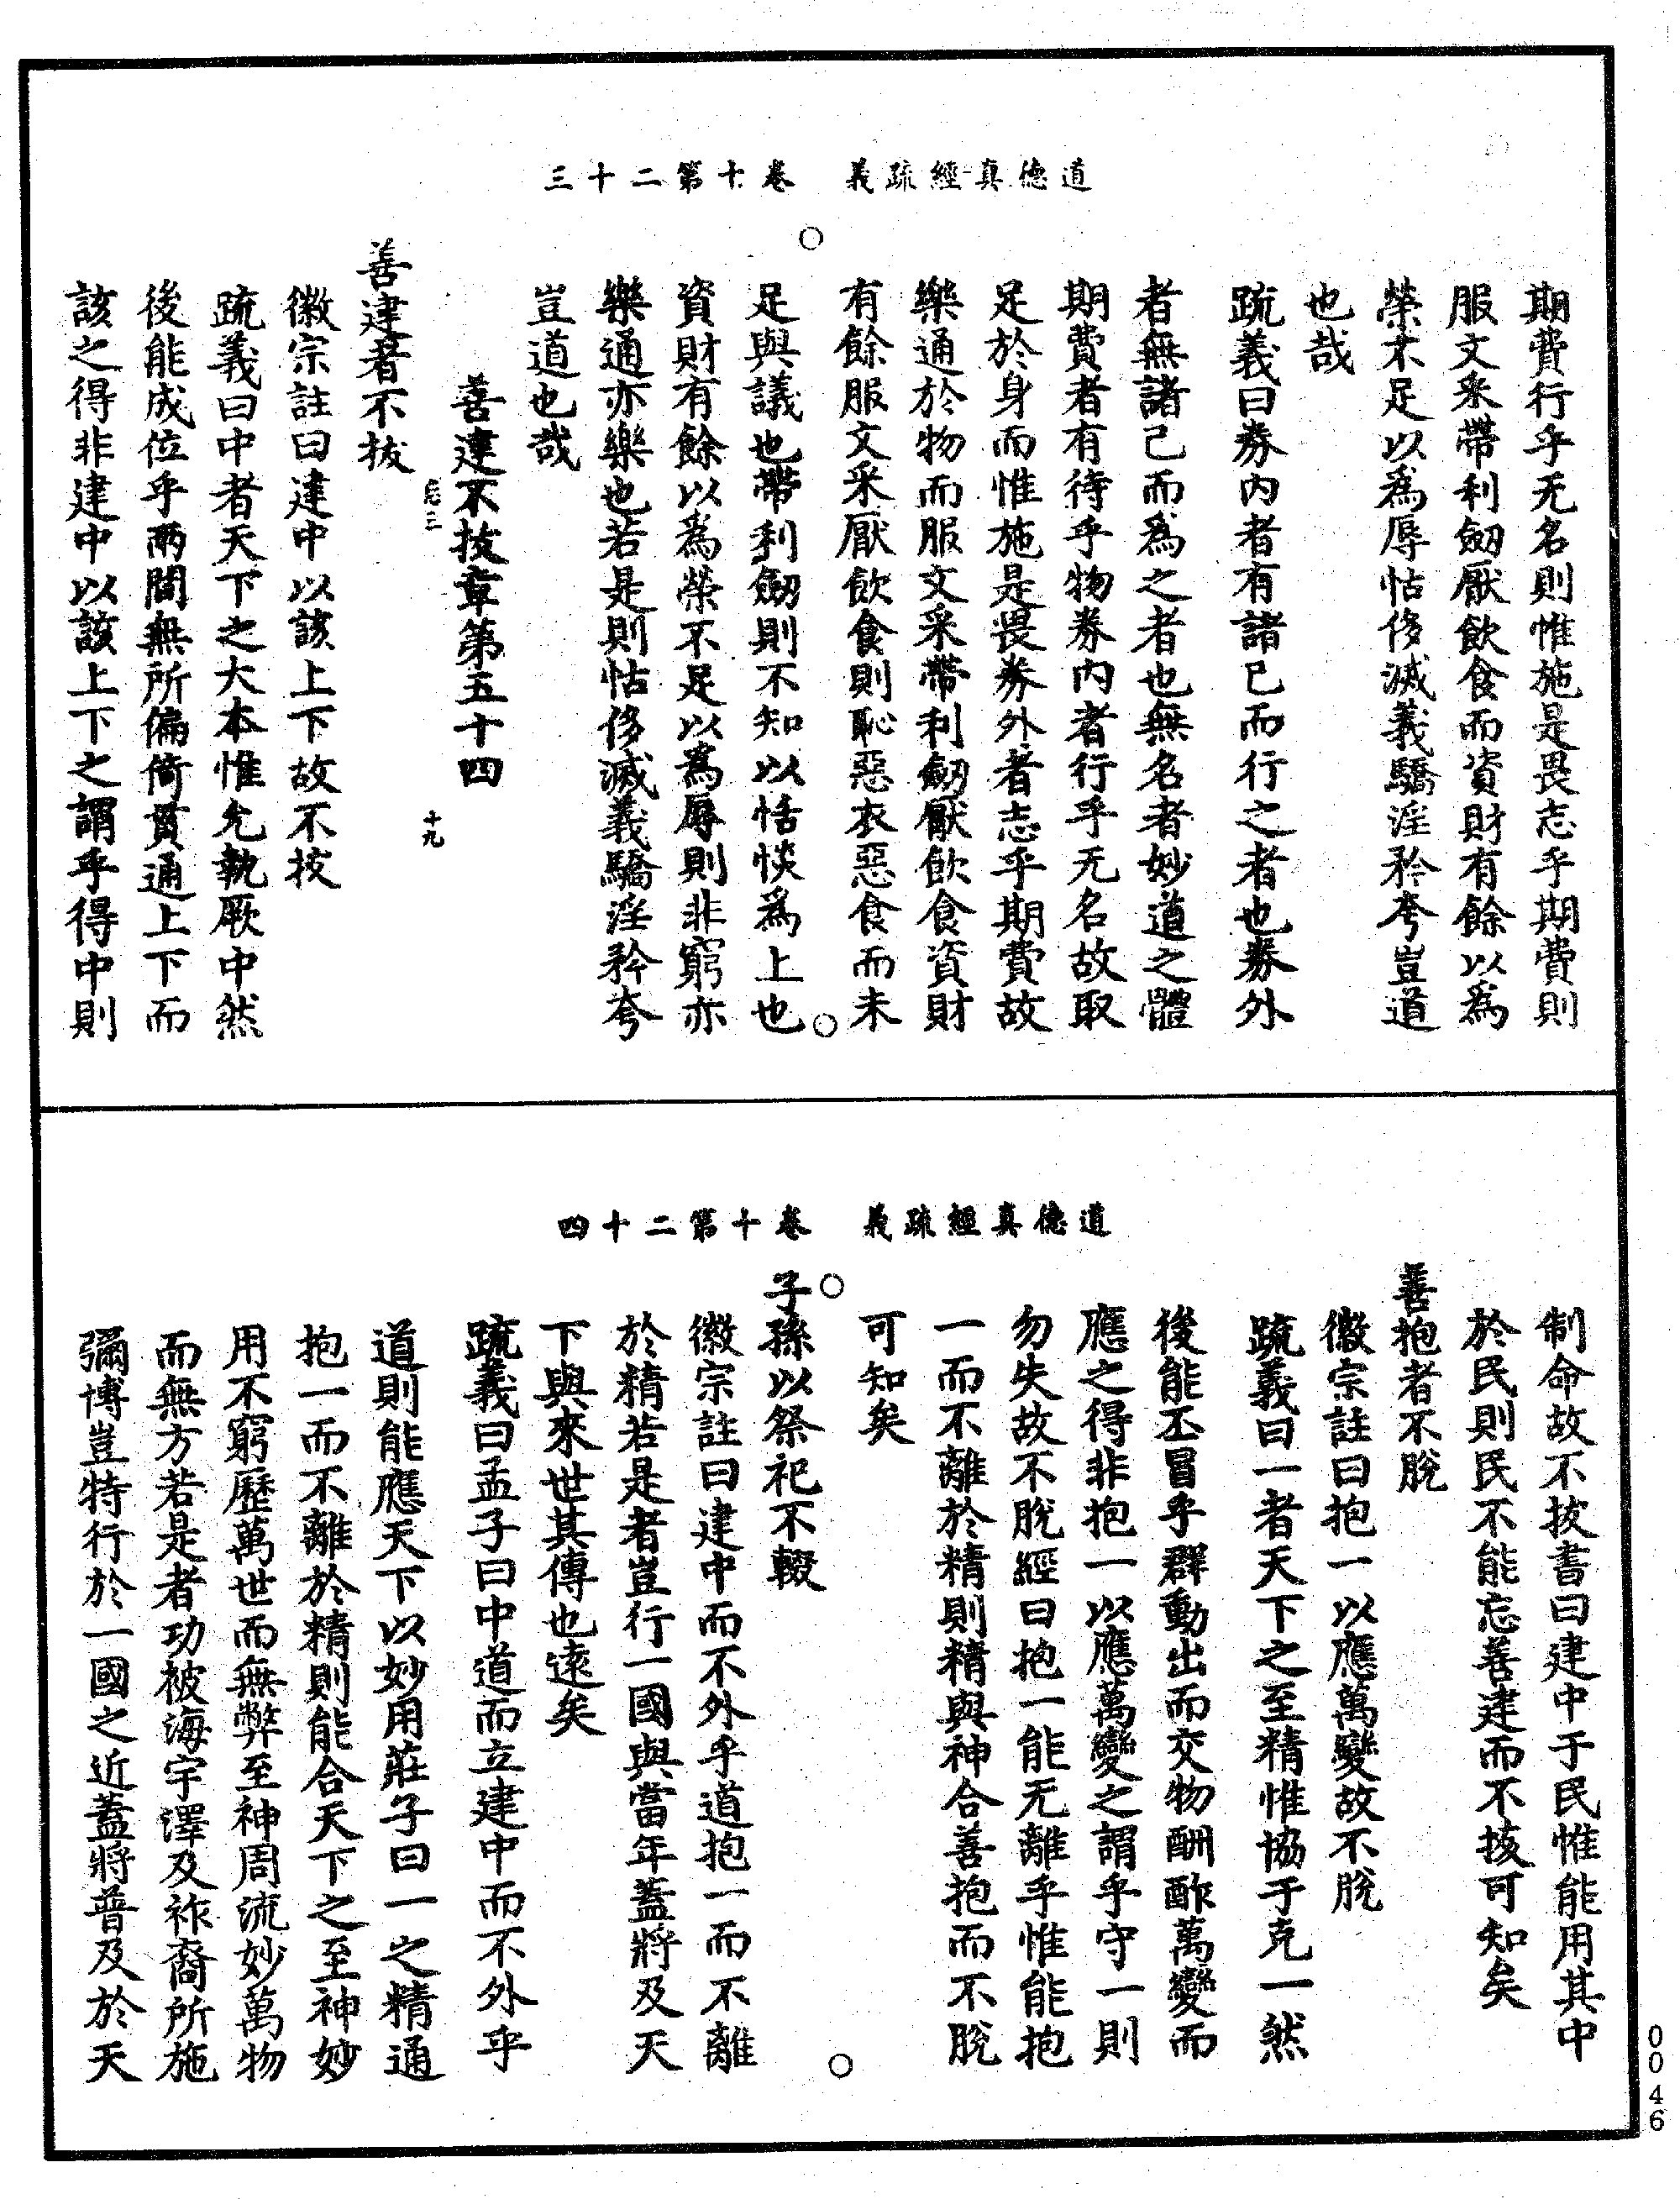 道德真經疏義　卷十第二十三
期費行乎无名則惟施是畏志乎期費則
服文采帶利劒厭飲食而資財有餘以為
榮不足以為辱怙侈滅義驕淫矜夸豈道
也哉
疏義曰券內者有諸己而行之者也券外
者無諸己而為之者也無名者妙道之體
期費者有待乎物券內者行乎无名故取
足於身而惟施是畏券外者志乎期費故
樂通於物而服文采帶利劒厭飲食資財
有餘服文采厭飲食則恥惡衣惡食而未
足與議也帶利劒則不知以恬惔為上也
資財有餘以為榮不足以為辱則非窮亦
樂通亦樂也若是則怙侈滅義驕淫矜夸
豈道也哉
善建不拔章第五十四
三　十九
善建者不拔
徽宗註曰建中以該上下故不拔
疏義曰中者天下之大本惟允執厥中然
後能成位乎兩間無所偏倚貫通上下而
該之得非建中以該上下之謂乎得中則
道德真經疏義　卷十第二十四
制命故不拔書曰建中于民惟能用其中
於民則民不能忘善建而不拔可知矣
善抱者不脫
徽宗註曰抱一以應萬變故不脫
疏義曰一者天下之至精惟協于克一然
後能丕冒乎群動出而交物酬酢萬變而
應之得非抱一以應萬變之謂乎守一則
勿失故不脫經曰抱一能无離乎惟能抱
一而不離於精則精與神合善抱而不脫
可知矣
子孫以祭祀不輟
徽宗註曰建中而不外乎道抱一而不離
於精若是者豈行一國與當年蓋將及天
下與來世其傳也遠矣
疏義曰孟子曰中道而立建中而不外乎
道則能應天下以妙用莊子曰一之精通
抱一而不離於精則能合天下之至神妙
用不窮歷萬世而無弊至神周流妙萬物
而無方若是者功被海宇澤及祚裔所施
彌博豈特行於一國之近蓋將普及於天
0046